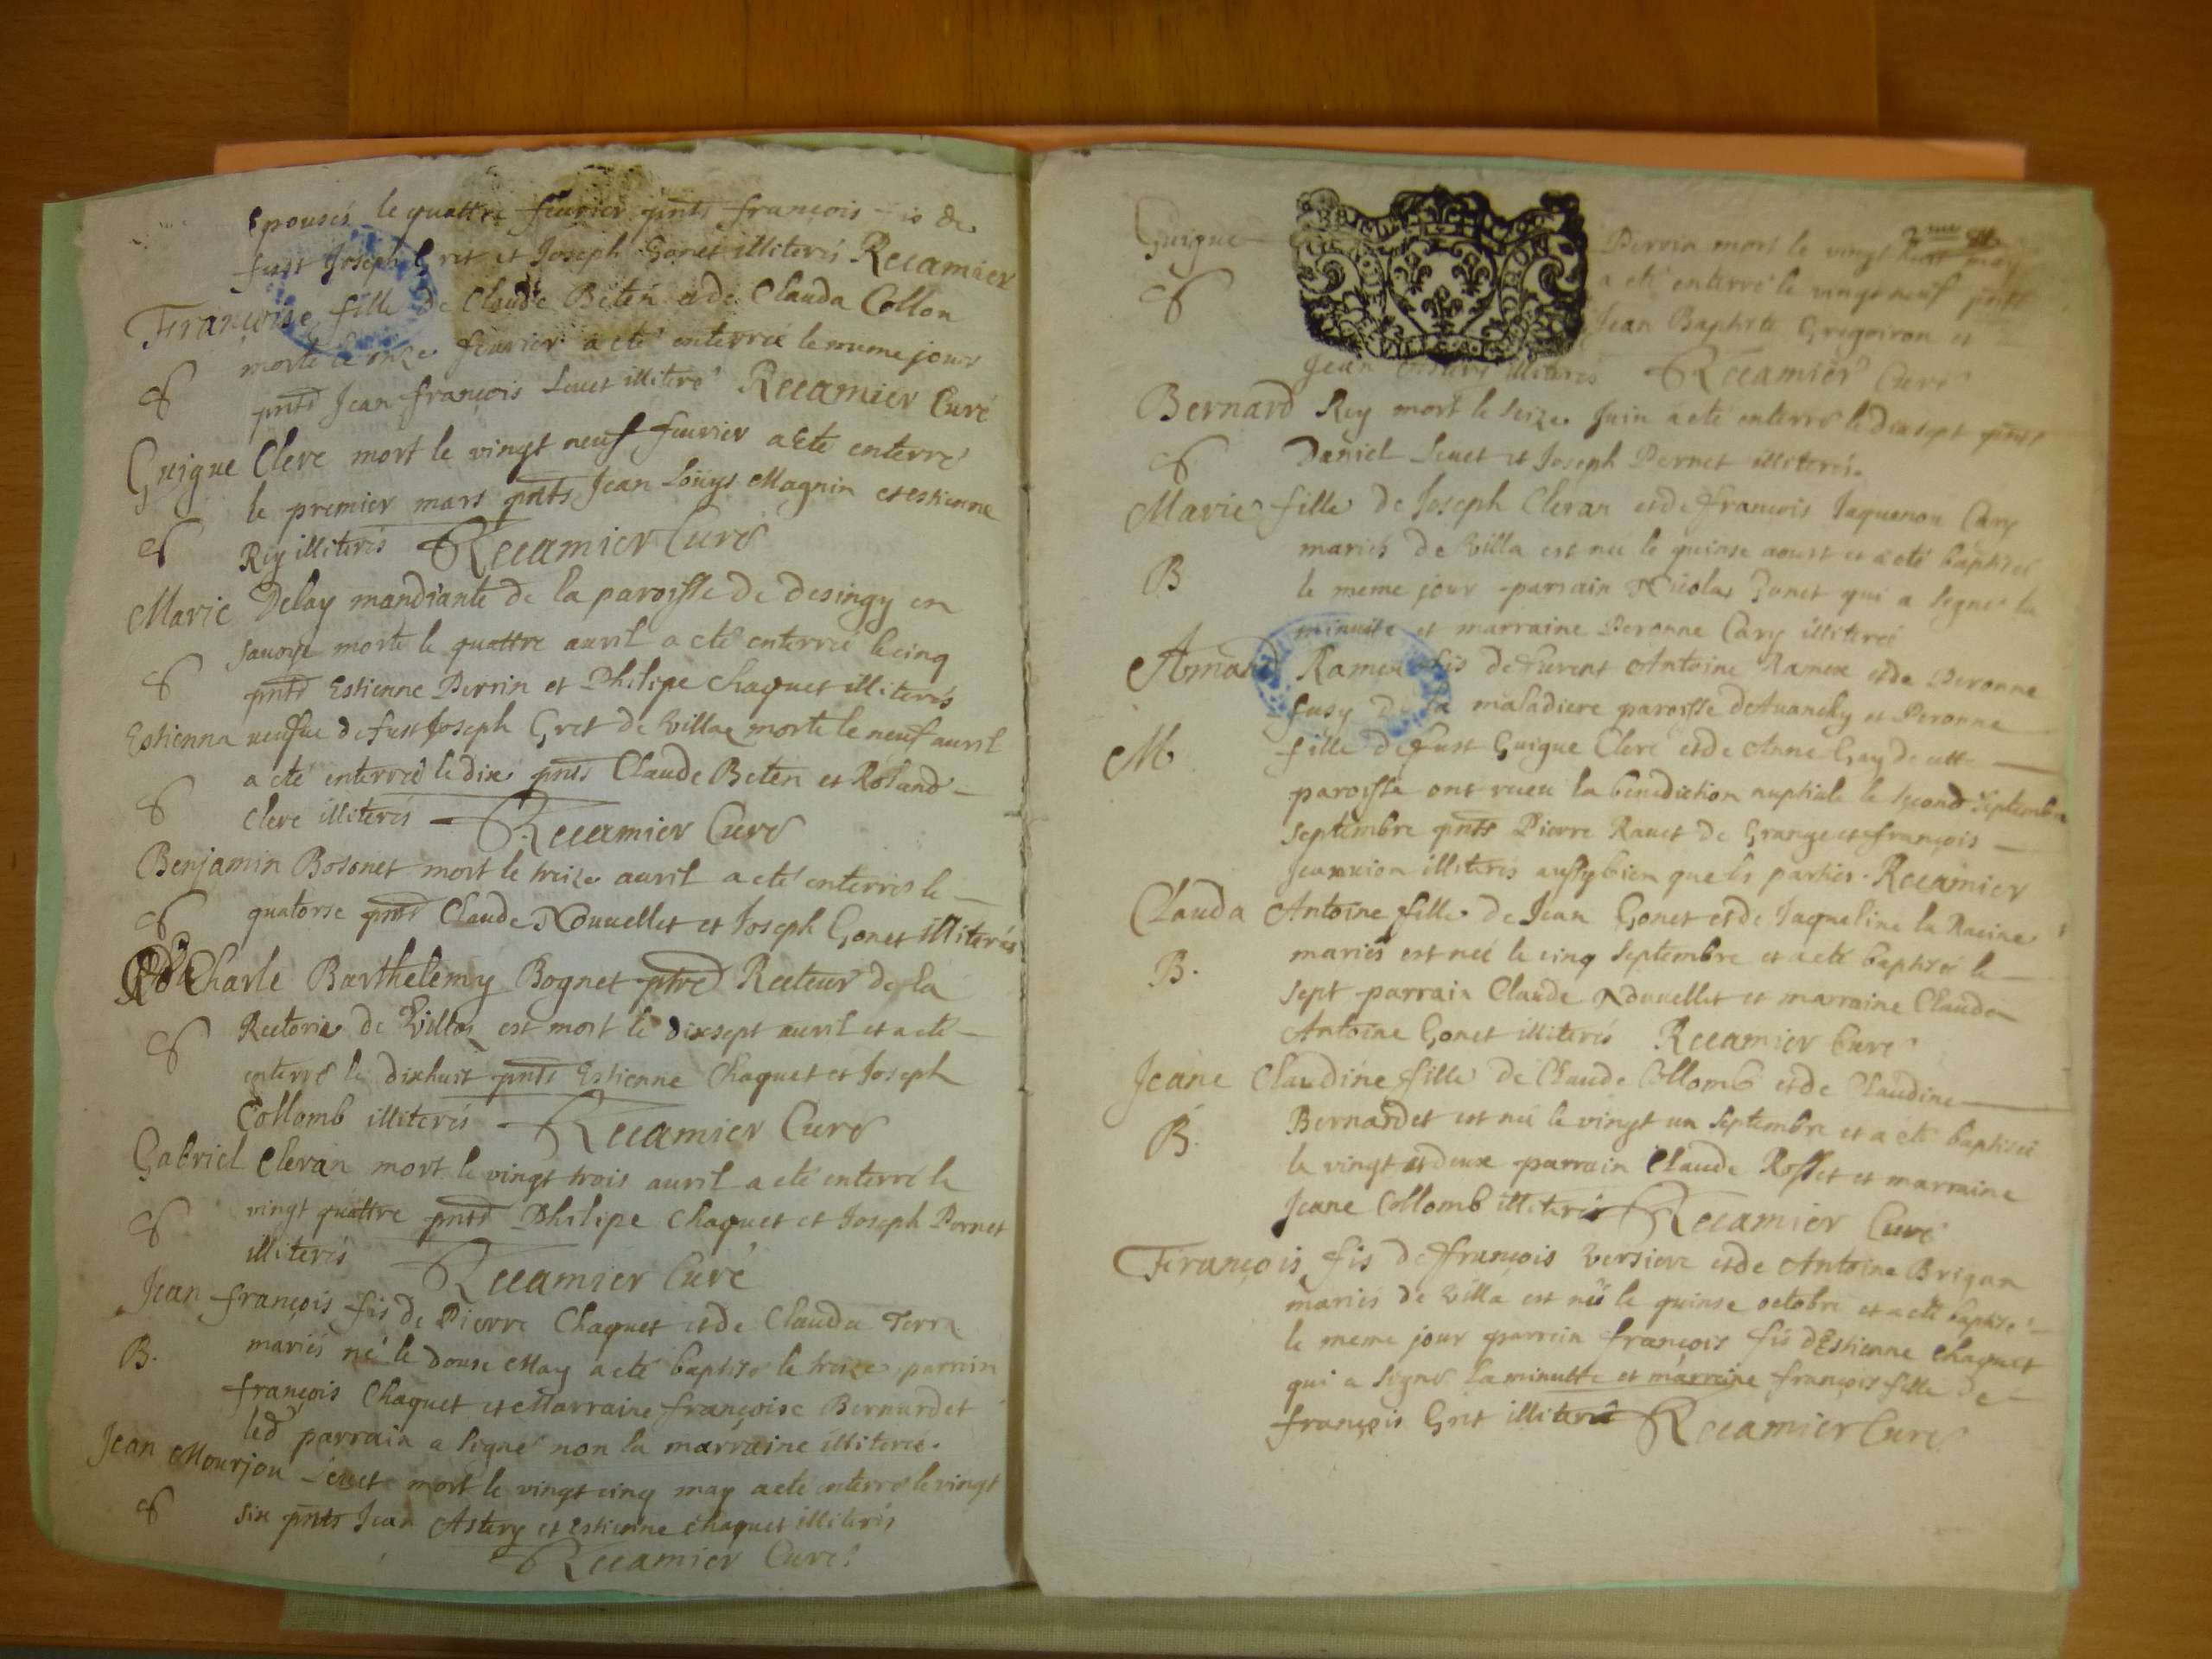 Epousés le quattre feurier pnts françois fis de
fust Joseph Gret et Joseph Gonet illiterés Recamier
Françoise fille de Claude Beten et de Clauda Collon
morte le onze feurier a eté enterrée le mme jour
pnts Jean françois Leuet illiteré Recamier Curé
Guigue Clerc mort le vingt neuf feurier a Eté enterré
le premier mars pnts Jean Loüys Magnin et estienne
Rey illiterés Recamier Curé
Marie Delay mandiante de la paroisse de desingy en
sauoye morte le quattre auril a eté enterrée le cinq
pnts Estienne Perrin et Philipe Chaquet illiterés
Estienna veufue de fust Joseph Gret de Villa morte le neuf auril
a eté enterreé le dix pnts Claude Beten et Roland
Clerc illiterés Recamier Curé
Benjamin Bosonet mort le treize auril a eté enterré le
quatorse pnts Claude Nouuellet et Joseph Gonet illiterés
Rd Charle Barthelemy Bognet ptre Recteur de la
Rectorie de Villa est mort le dixsept auril et a eté
enterré le dixhuit pnts Estienne Chaquet et Joseph
Collomb illiterés Recamier Curé
Gabriel Cleran mort le vingt trois auril a eté enterré le
vingt quattre pnts Philipe Chaquet et Joseph Pernet
illiterés Recamier Curé
Jean françois fis de Pierre Chaquet et de Clauda Terra
B. mariés né le douse May a eté baptisé le treize parrain
françois Chaquet et Marraine françoise Bernardet
led parrain a signé non la marraine illiterée.
Jean Mourjon Leuet mort le vingt cinq may a eté enterré le vingt
six pnts Jean Astery et Estienne Chaquet illiterés
Recamier Curé
Guigue Perrin mort le vingt huit may
a eté enterré le vingt neuf pnts
Jean Baptiste Gregoiron et
Jean illiterés Recamier Curé
Bernard Rey mort le seize Juin a eté enterré le dixsept pnts
Daniel Leuet et Joseph Pernet illiterés.
Marie fille de Joseph Cleran et de françois Jaquenon Cary
mariés de Villa est née le quinse aoust et a eté baptisée
B le meme jour parrain Nicolas Gonet qui a signé la
minutte et marraine Peronne Cary illiterée
Amard Ramex fis de furent Antoine Ramex et de Peronne
fusy de la maladiere paroisse de Auanchy et Peronne
M fille de fust Guigue Clerc et de Anne Gay de cette
paroisse ont receu la benediction nuptiale le second Septembre
septembre pnts Pierre Rauet de Grange et françois
illiterés aussy bien que les parties. Recamier
Clauda Antoine fille de Jean Gonet et de Jaqueline la Racine
mariés est née le cinq Septembre et a eté baptisée le
B. sept parrain Claude Nouuellet et marraine Clauda
Antoine Gonet illiterés Recamier Curé
Jeane Claudine fille de Claude Collomb et de Claudine
Bernardet est née le vingt un Septembre et a eté baptisée
B. le vingt et deux parrain Claude Rosset et marraine
Jeane Collomb illiterés Recamier Curé
François fis de françois Versiere et de Antoine Brigan
mariés de Villa est né le quinse octobre et a eté baptisé
le meme jour parrain françois fis d'Estienne Chaquet
qui a signé la minutte et marraine françois fille de
françois Gret illiterée Recamier Curé